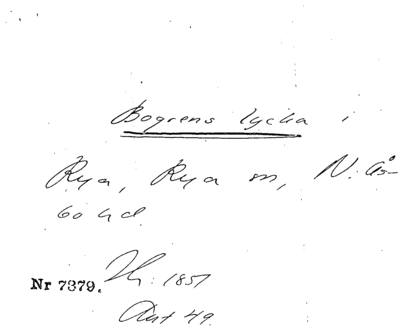 Bogrens lycka i
Rya, Rya sn, N. Ås-
bo hd.
Nr 7379. Th: 1851
Akt 49.